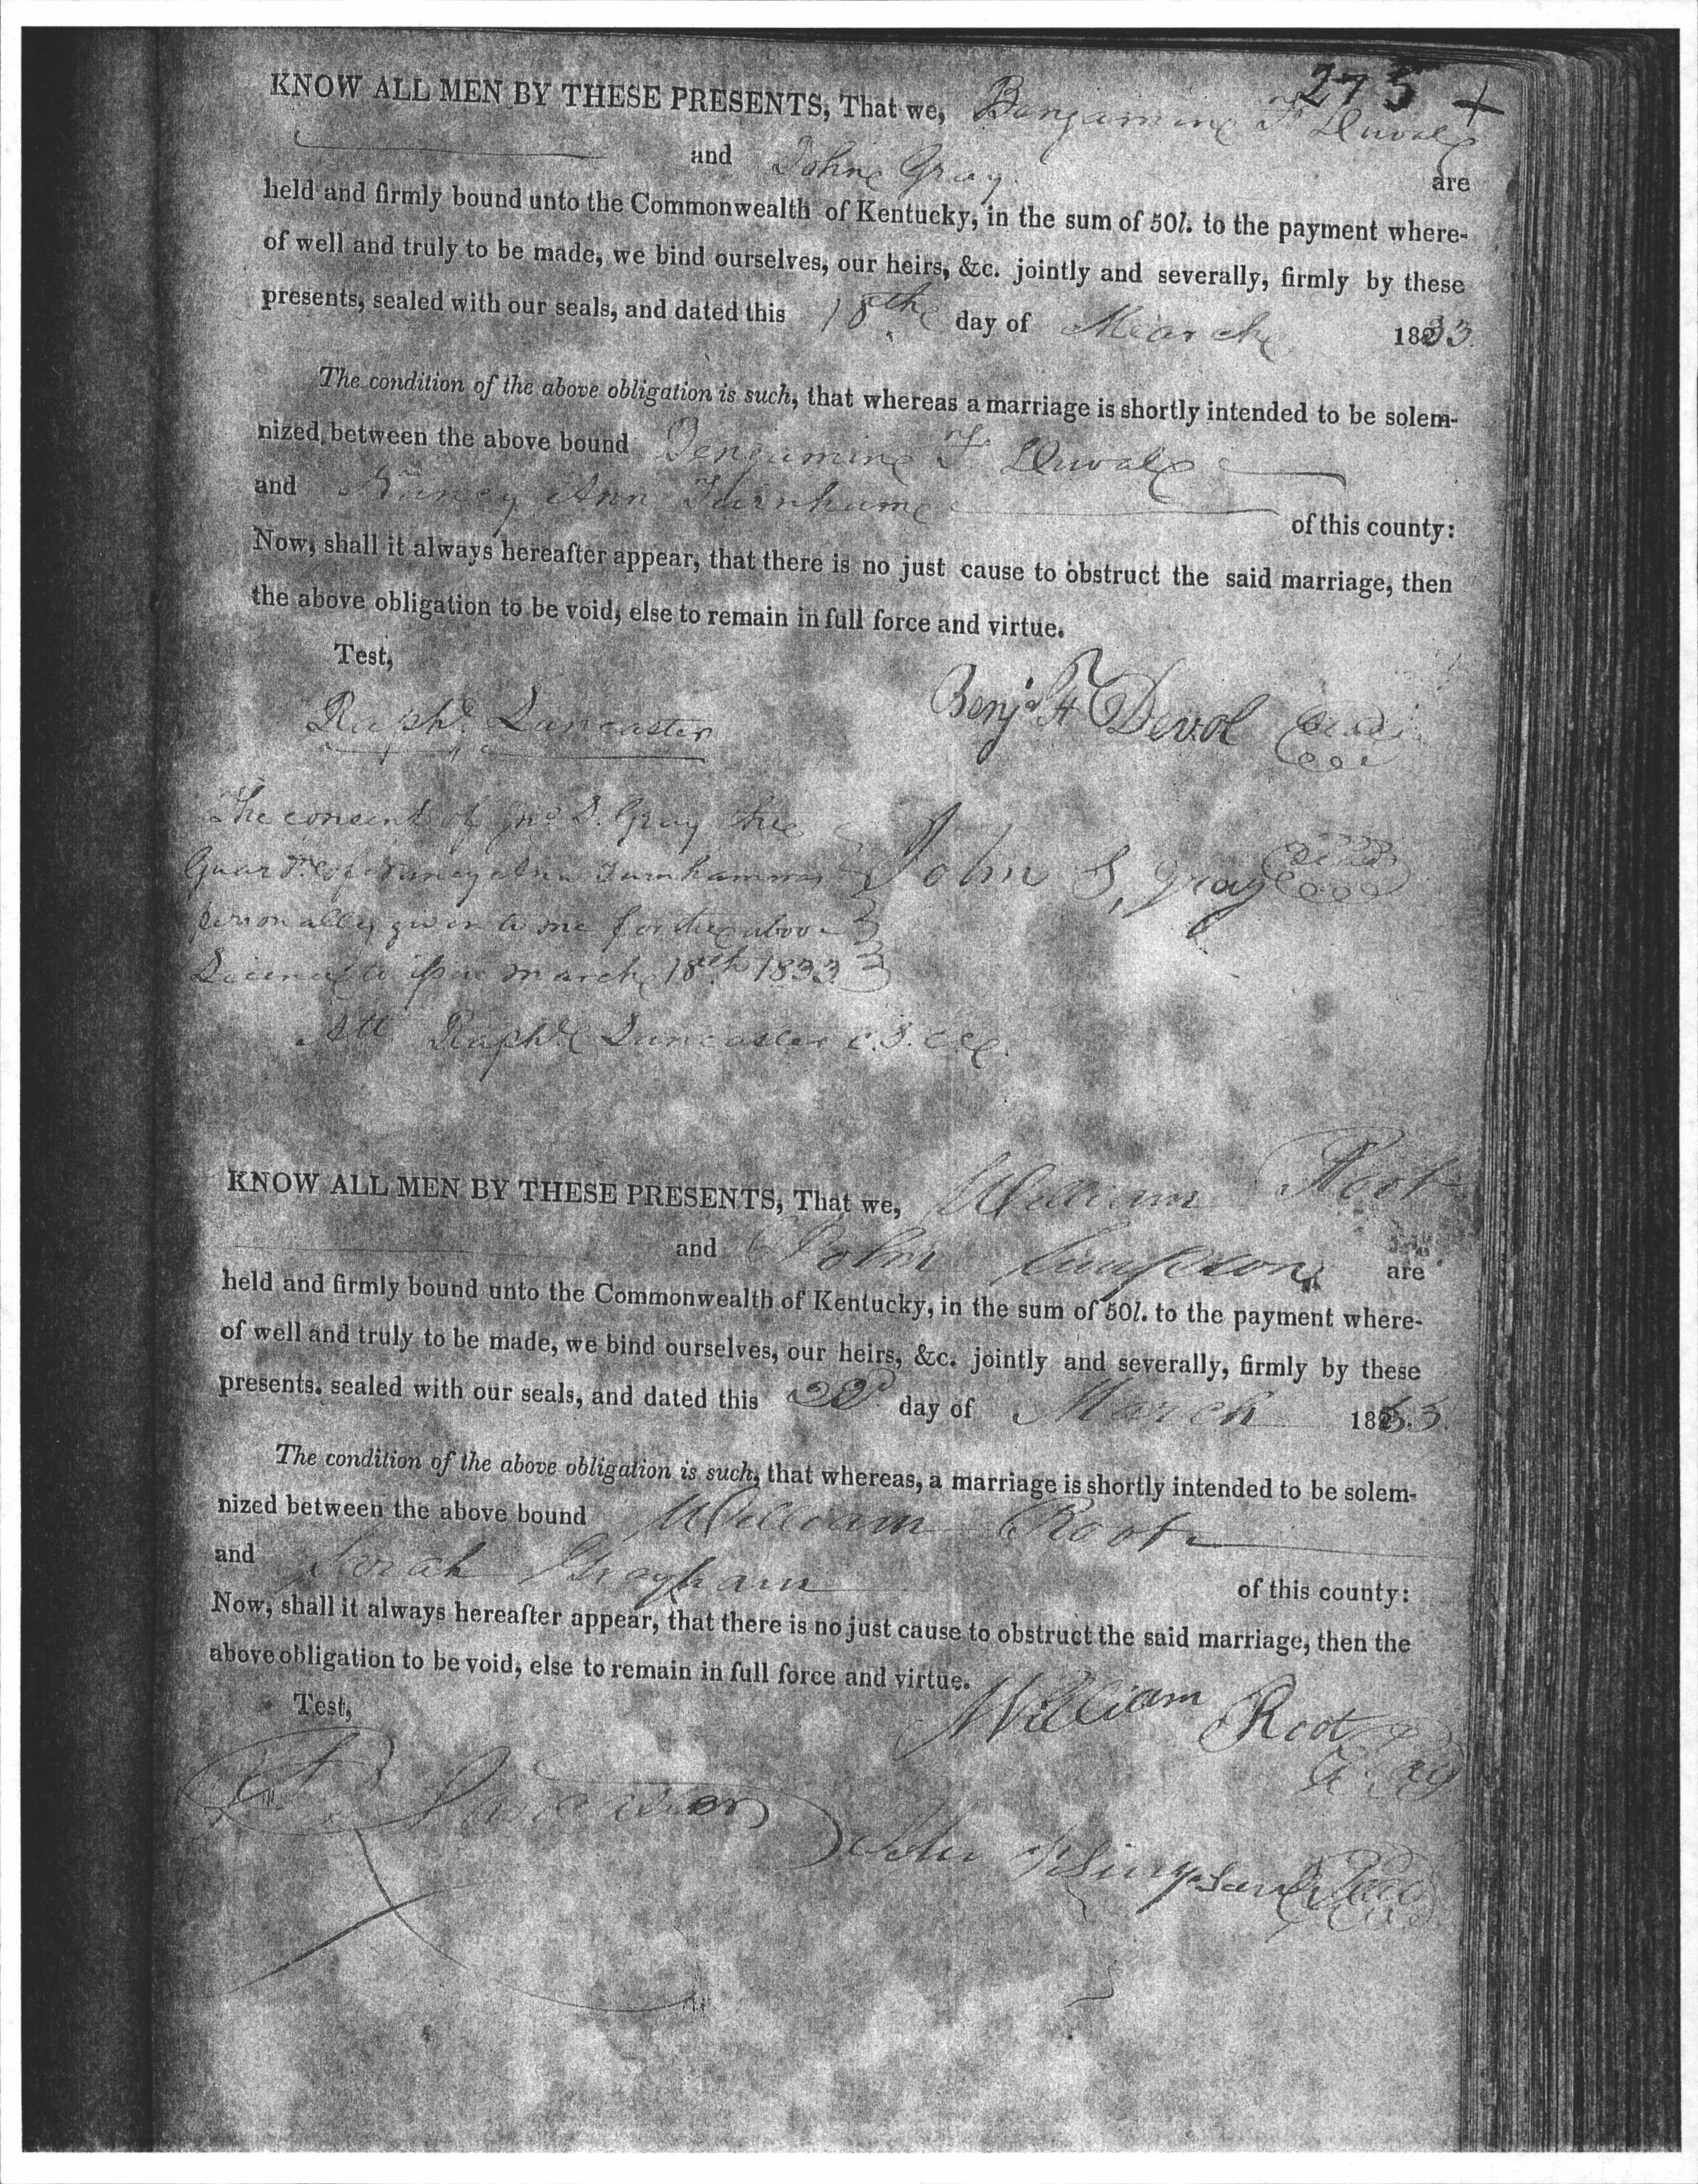 275 +
KNOW ALL MEN BY THESE PRESENTS, That we, Benjamine F. Duval
and John Gray are
held and firmly bound unto the Commonwealth of Kentucky, in the sum of 50l. to the payment where-
of well and truly to be made, we bind ourselves, our heirs, &c. jointly and severally, firmly by these
presents, sealed with our seals, and dated this 18th day of March 1833.
The condition of the above obligation is such, that whereas a marriage is shortly intended to be solem-
nized between the above bound Benjamine F. Duval
and Nancy Ann Turnham of this county:
Now, shall it always hereafter appear, that there is no just cause to obstruct the said marriage, then
the above obligation to be void, else to remain in full force and virtue.
Test,
Raphl. Lancaster
Benja. F Devol
The consent of Jno. S. Gray the
Guardn. of Nancy Ann Turnham was
John S, Gray
personally given to me for the above
License to issue March 18th 1833
Att Raphl. Lancaster
KNOW ALL MEN BY THESE PRESENTS, That we, William Root
and John Simpson are
held and firmly bound unto the Commonwealth of Kentucky, in the sum of 50l. to the payment where-
of well and truly to be made, we bind ourselves, our heirs, &c. jointly and severally, firmly by these
presents. sealed with our seals, and dated this day of March 1833.
The condition of the above obligation is such, that whereas, a marriage is shortly intended to be solem-
nized between the above bound William Root
and Sarah Grayham of this county:
Now, shall it always hereafter appear, that there is no just cause to obstruct the said marriage, then the
above obligation to be void, else to remain in full force and virtue.
Test,
William Root
John Simpson